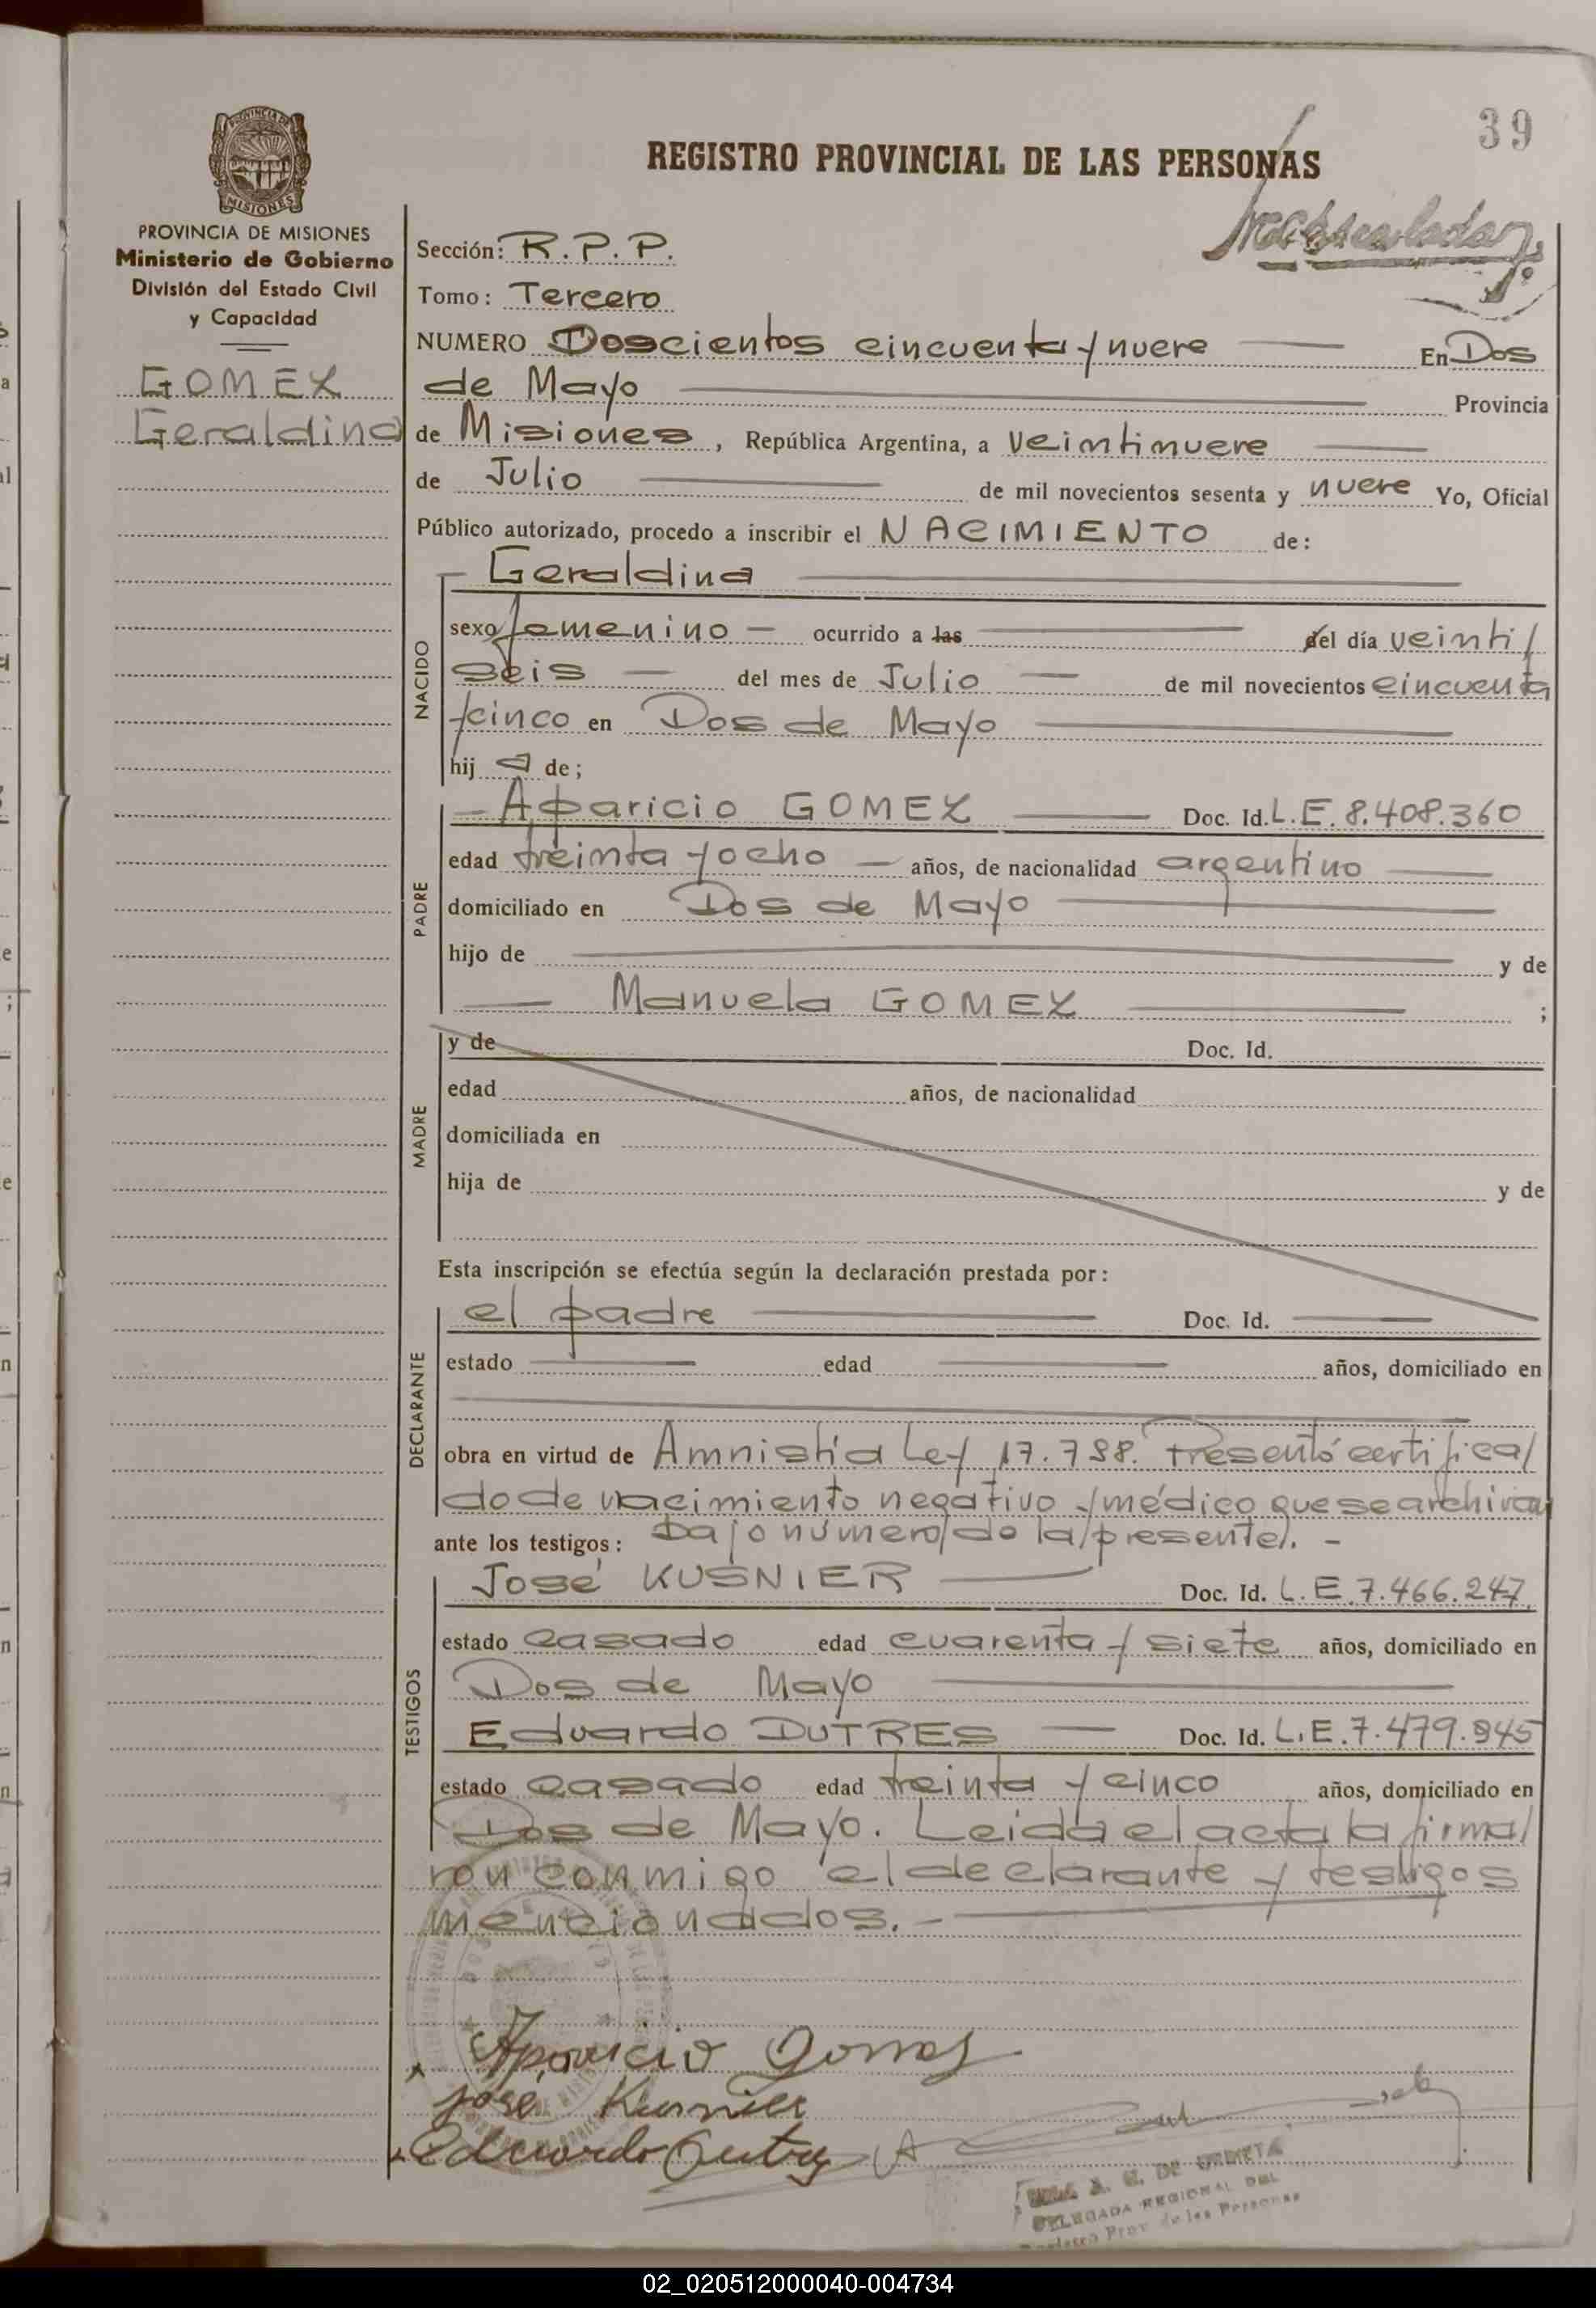 39
REGISTRO PROVINCIAL DE LAS PERSONAS
PROVINCIA DE
MISIONES
PROVINCIA DE MISIONES
Ministerio de Gobierno
División del Estado Civil
y Capacidad
GOMEZ
Geraldina
Sección: R.P.P.
Tomo: Tercero
NUMERO Doscientos cincuenta y nueve En Dos
de Mayo Provincia
de Misiones, República Argentina, a veintinueve
de Julio de mil novecientos sesenta y nueve Yo, Oficial
Público autorizado, procedo a inscribir el NACIMIENTO de:
NACIDO
Geraldina
sexo femenino - ocurrido a las del día veinti/
seis - del mes de Julio - de mil novecientos cincuenta
y cinco en Dos de Mayo
hij a de;
PADRE
Aparicio GOMEZ Doc. Id. L.E. 8.408.360
edad treinta y ocho - años, de nacionalidad argentino
domiciliado en Dos de Mayo
hijo de y de
Manuela GOMEZ ;
MADRE
y de Doc. Id.
edad años, de nacionalidad
domiciliada en
hija de y de
Esta inscripción se efectúa según la declaración prestada por:
DECLARANTE
el padre Doc. Id.
estado edad años, domiciliado en
obra en virtud de Amnistía Ley 17.798. Presentó certifica/
do de nacimiento negativo y médico que se archivan
ante los testigos: bajo número de la presente. -
TESTIGOS
José KUSNIER Doc. Id. L.E. 7.466.247
estado casado edad cuarenta y siete años, domiciliado en
Dos de Mayo
Eduardo DUTRES Doc. Id. L.E. 7.479.845
estado casado edad treinta y cinco años, domiciliado en
Dos de Mayo. Leida el acta la firma/
ron conmigo el declarante y testigos
mencionados. -
Aparicio Gomes
José Kusnier
Eduardo
A. G. DE
DELEGADA REGIONAL DEL
Registro Prov. de las Personas
02_020512000040-004734